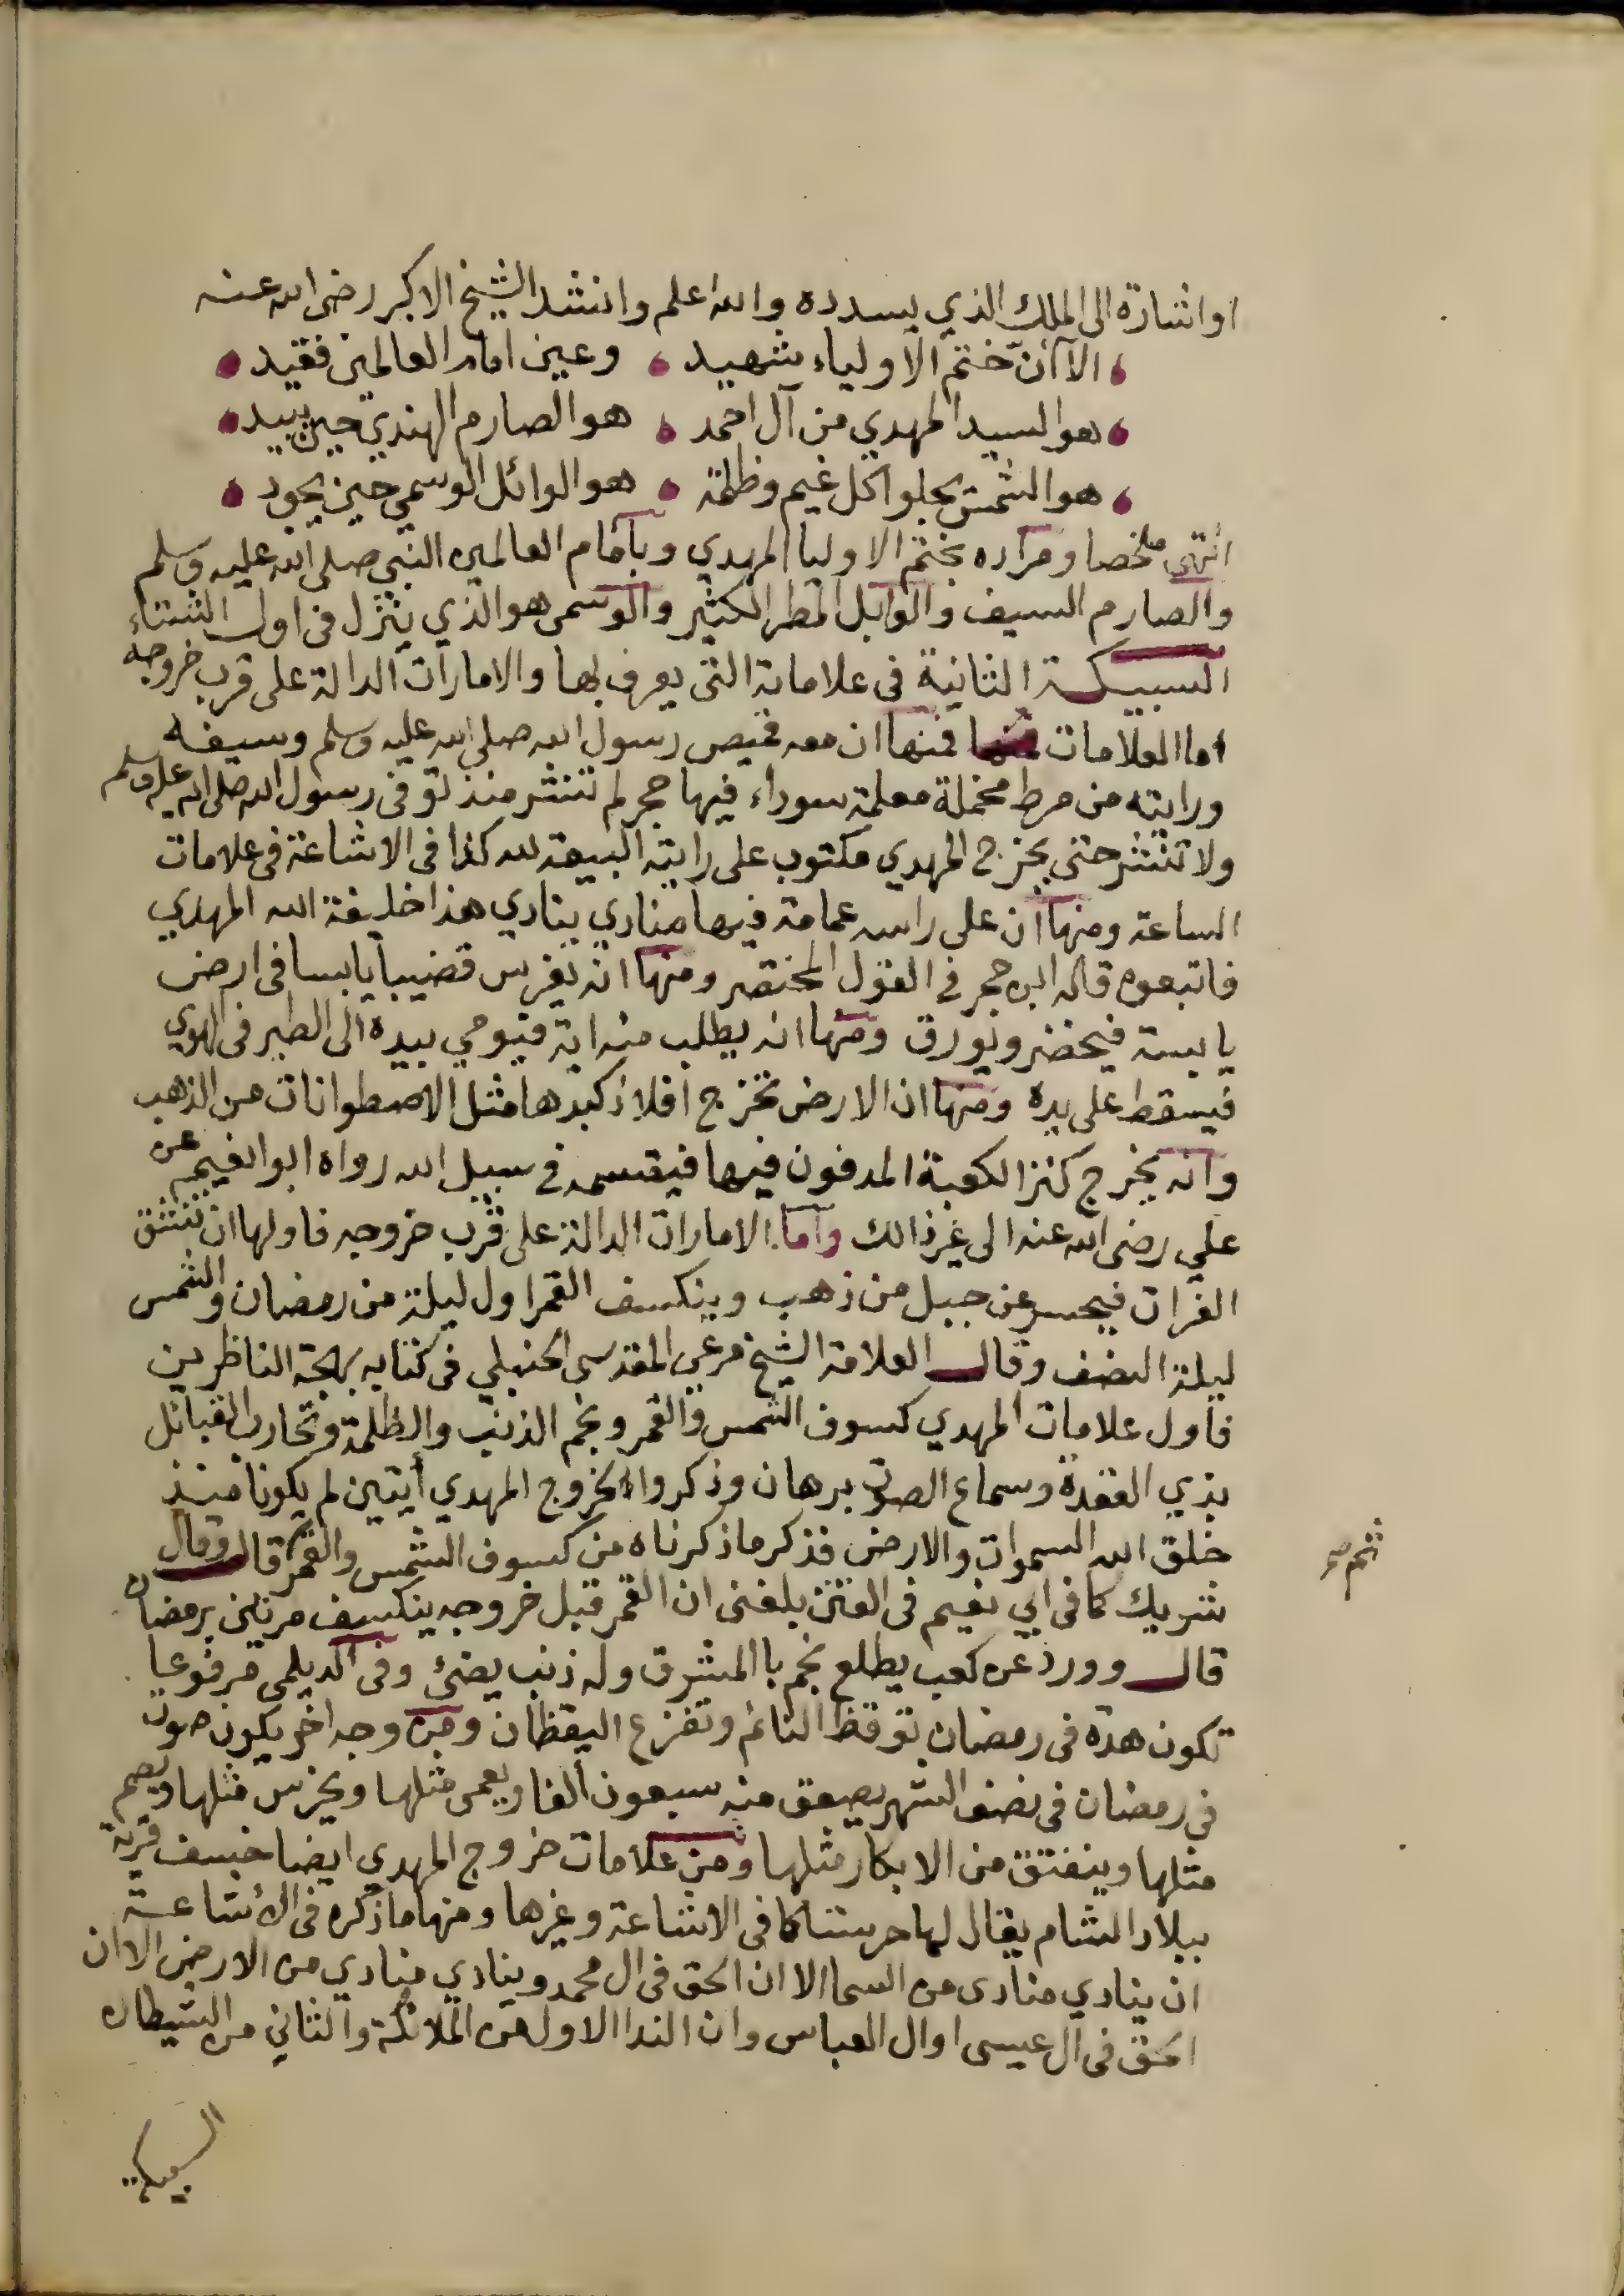 او اشارة الى الملك الذي يسدده والله اعلم وانشد الشيخ الاكبر رضى الله عنه
الا ان ختم الاولياء شهيد وعين امام العالمين فقيد
هو السيد المهدي من آل احمد هو الصارم الهندي حين يبيد
هو الشمس يجلوا كل غيم وظلمة هو الوائل الوسمي حين يجود
انتهى ملخصا ومراده بختم الاوليا المهدي وبامام العالمين النبي صلى الله عليه وسلم
والصارم السيف والوابل المطر الكثير والوسمى هو الذي ينزل فى اول الشتاء
السبيكة الثانية فى علاماته التى يعرف بها والامارات الدالة على قرب خروجه
اما العلامات فمنها ان معه قميص رسول الله صلى الله عليه وسلم وسيفه
ورايته من مرط مخملة معلمة سوداء فيها حجر لم تنشر منذ توفى رسول الله صلى الله عليه وسلم
ولا تنشر حتى يخرج المهدي مكتوب على رايته البيعة لله كذا فى الاشاعة فى علامات
الساعة ومنها ان على راسه عمامة فيها منادي ينادي هذا خليفة الله المهدي
فاتبعوه قاله ابن حجر في القول المختصر ومنها انه يغرس قضيبا يابسا فى ارض
يابسة فيخضر ويورق ومنها انه يطلب منه اية فيومي بيده الى الطير فى الهوي
فيسقط على يده ومنها ان الارض تخرج افلاذ كبدها مثل الاصطوانات من الذهب
وانه يخرج كنز الكعبة المدفون فيها فيقسمه في سبيل الله رواه ابو انعيم عن
علي رضى الله عنه الى غير ذالك واما الامارات الدالة على قرب خروجه فاولها ان تنشق
الفرات فيحسر عن جبيل من ذهب وينكسف القمر اول ليلة من رمضان والشمس
ليلة النصف وقال العلامة الشيخ مرعى المقدسى الحنبلي فى كتابه بهجة الناظرين
فاول علامات المهدي كسوف الشمس والقمر ونجم الذنب والظلمة وتحارب القبائل
بذي القعدة وسماع الصوت برهان وذكروا لخروج المهدي أيتين لم يكونا منذ
خلق الله السموات والارض فذكر ما ذكرناه من كسوف الشمس والقمر قال وقال
شريك كما فى ابي نعيم فى الفتن بلغنى ان القمر قبل خروجه ينكسف مرتين برمضان
قال وورد عن كعب يطلع نجم با المشرق وله ذنب يضئ وفى الديلمى مرفوعا
تكون هدة فى رمضان توقظ النائم وتفزع اليقظان ومن وجه اخر يكون صوت
في رمضان فى نصف الشهر يصعق منه سبعون ألفا ويعمى مثلها ويخرس مثلها ويصم
مثلها وينفتق من الابكار مثلها ومن علامات خروج المهدي ايضا خسف قرية
ببلاد الشام يقال لها حرستا كما فى الاشاعة وغيرها ومنها ما ذكره فى الأشاعة
ان ينادي منادى من السما الا ان الحق فى ال محمد وينادي منادي من الارض الا ان
الحق فى ال عيسى او ال العباس وان الندا الاول من الملائكة والثاني من الشيطان
السبيكة